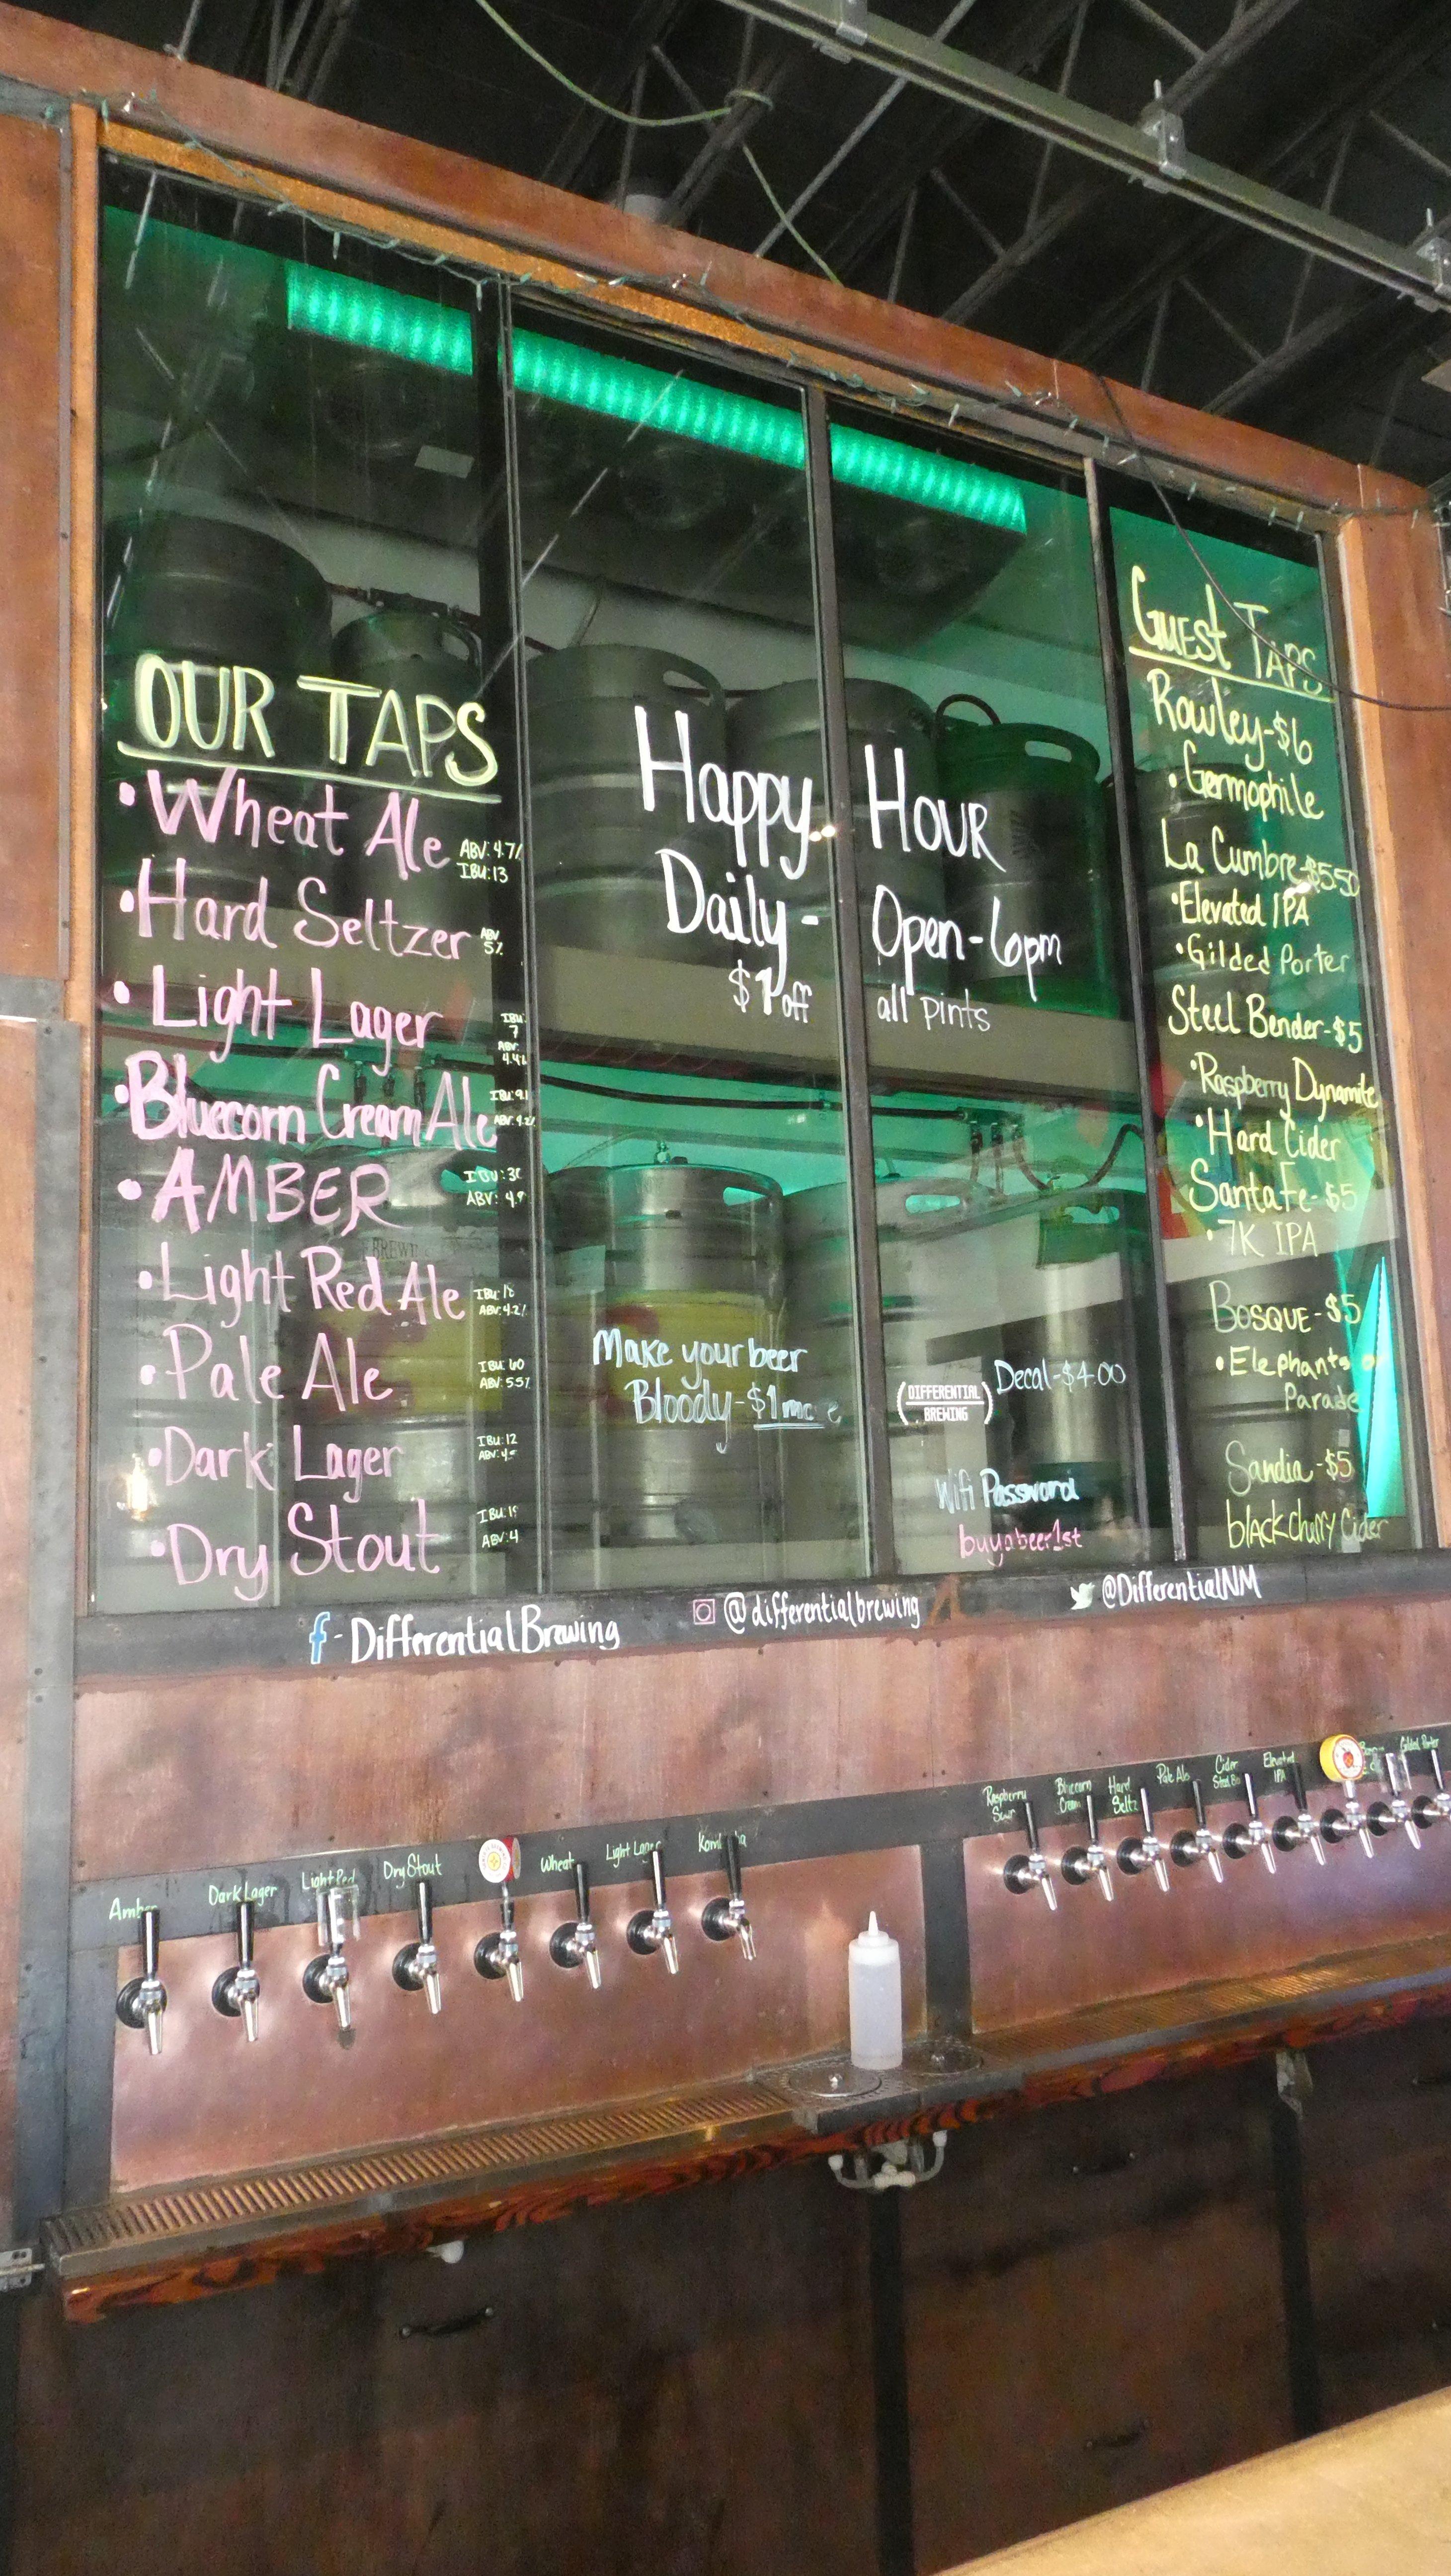 OUR TAPS
• Wheat Ale
ABV: 4.7%
IBU: 13
• Hard Seltzer
ABV
5%
• Light Lager
IBU:
7
ABV:
• Bluecorn Cream Ale
• AMBER
ABV: 4.9
• Light Red Ale
ABV: 4.2%
• Pale Ale
IBU: 60
ABV: 5.5%
• Dark Lager
IBU: 12
• Dry Stout
ABV: 4
Happy Hour
Daily - Open - 6pm
$1 off all pints
Make your beer
Bloody - $1
DIFFERENTIAL
BREWING
Decal - $4.00
Wifi Password
buyabeer1st
Guest Taps
Rowley - $6
• Germophile
La Cumbre - $5.50
• Elevated IPA
• Gilded Porter
Steel Bender - $5
• Raspberry Dynamite
• Hard Cider
Santa Fe - $5
• 7K IPA
BOSQUE - $5
• Elephants on
Parade
Sandia - $5
blackcherry Cider
f - DifferentialBrewing
@differentialbrewing
@DifferentialNM
Amber
Dark Lager
Light Red
Dry Stout
Wheat
Light Lager
Raspberry
Sour
Bluecorn
Cream
Hard
Seltz
Pale Ale
Cider
Elevated
IPA
Gilded Porter